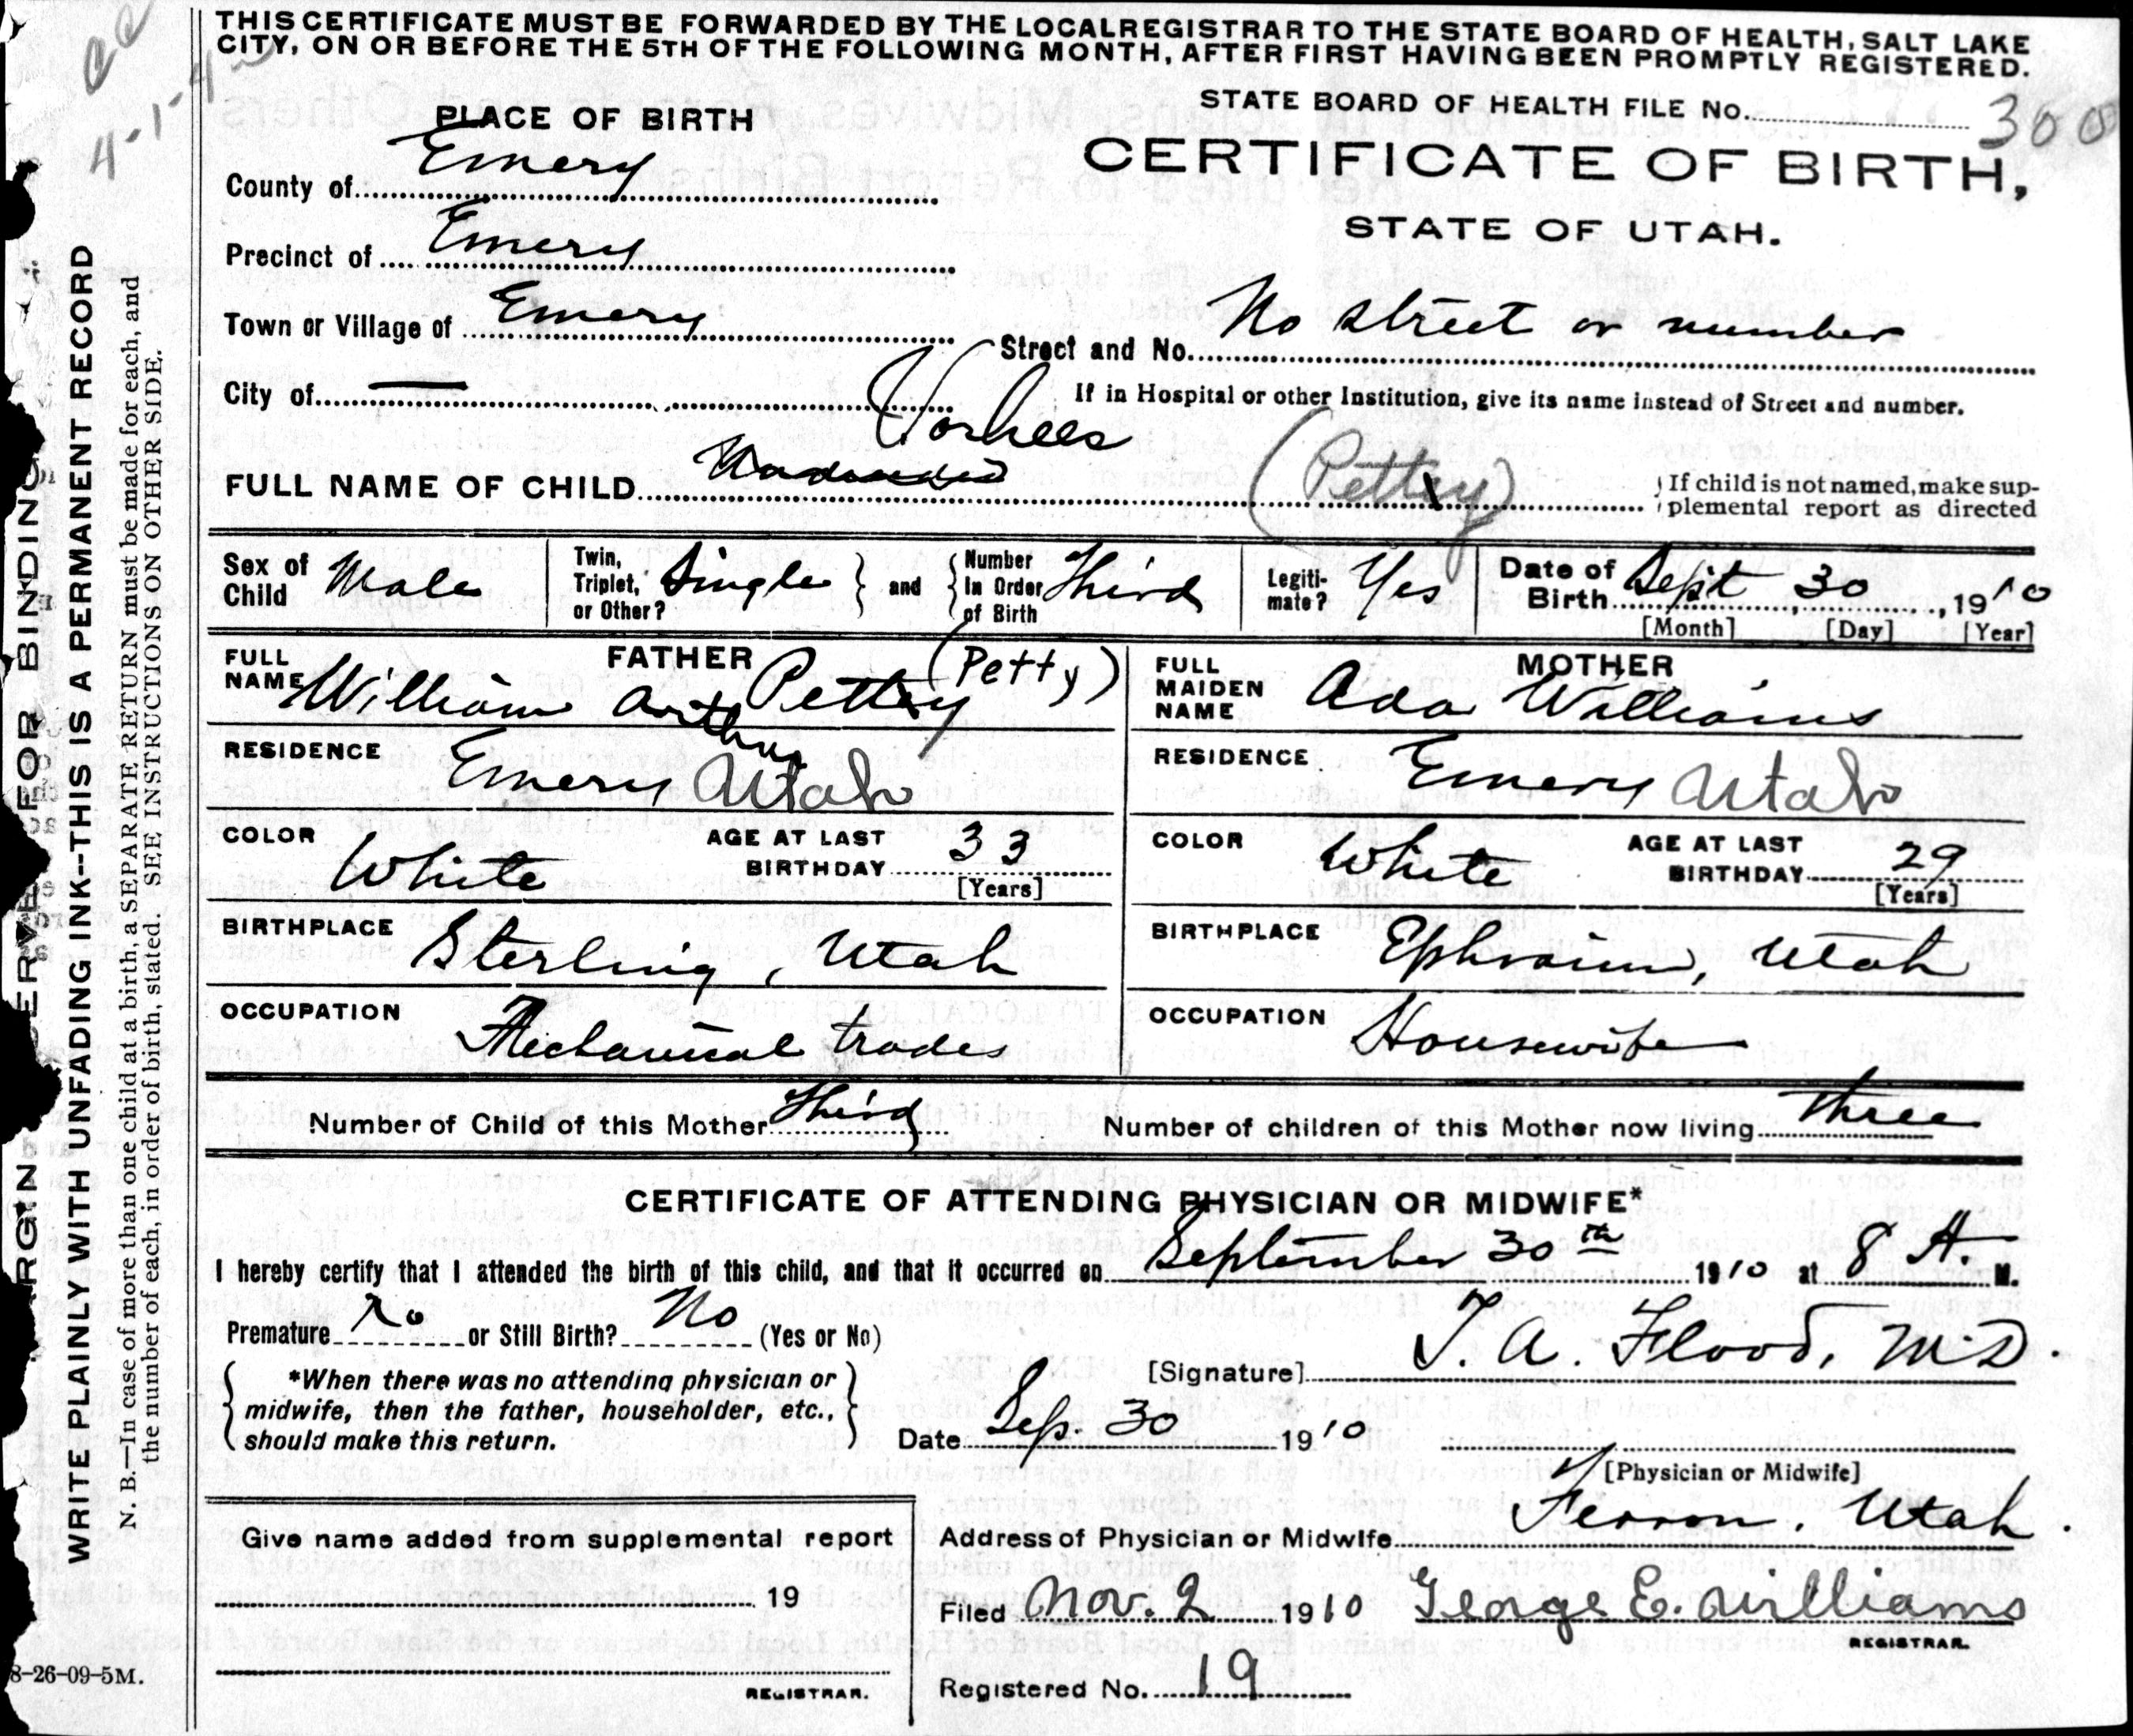 THIS CERTIFICATE MUST BE FORWARDED BY THE LOCAL REGISTRAR TO THE STATE BOARD OF HEALTH, SALT LAKE
CITY, ON OR BEFORE THE 5TH OF THE FOLLOWING MONTH, AFTER FIRST HAVING BEEN PROMPTLY REGISTERED.
STATE BOARD OF HEALTH FILE No. 300
PLACE OF BIRTH
CERTIFICATE OF BIRTH,
STATE OF UTAH.
County of Emery
Precinct of Emery
Town or Village of Emery
Street and No. No street or number
City of —
If in Hospital or other Institution, give its name instead of Street and number.
Vorhees
FULL NAME OF CHILD (Petty)
If child is not named, make sup-
plemental report as directed
Sex of Child Male
Twin, Triplet, or Other? Single and Number In Order of Birth Third
Legiti-mate? Yes
Date of Birth Sept 30, 1910
[Month] [Day] [Year]
FATHER
FULL NAME William Arthur Petty (Petty)
MOTHER
FULL MAIDEN NAME Ada Williams
RESIDENCE Emery Utah
RESIDENCE Emery Utah
COLOR White AGE AT LAST BIRTHDAY 33 [Years]
COLOR White AGE AT LAST BIRTHDAY 29 [Years]
BIRTHPLACE Sterling, Utah
BIRTHPLACE Ephraim, Utah
OCCUPATION Mechanical trades
OCCUPATION Housewife
Number of Child of this Mother Third
Number of children of this Mother now living three
CERTIFICATE OF ATTENDING PHYSICIAN OR MIDWIFE*
I hereby certify that I attended the birth of this child, and that it occurred on September 30th 1910 at 8 A. M.
Premature No or Still Birth? No (Yes or No)
[Signature] T. A. Flood, M.D.
*When there was no attending physician or
midwife, then the father, householder, etc.,
should make this return.
Date Sep. 30 1910
[Physician or Midwife]
Give name added from supplemental report
Address of Physician or Midwife Ferron, Utah.
19
Filed Nov. 2 1910 George E. Williams
REGISTRAR.
REGISTRAR.
Registered No. 19
8-26-09-5M.
WRITE PLAINLY WITH UNFADING INK--THIS IS A PERMANENT RECORD
N. B.—In case of more than one child at a birth, a SEPARATE RETURN must be made for each, and
the number of each, in order of birth, stated. SEE INSTRUCTIONS ON OTHER SIDE.
FOR BINDING